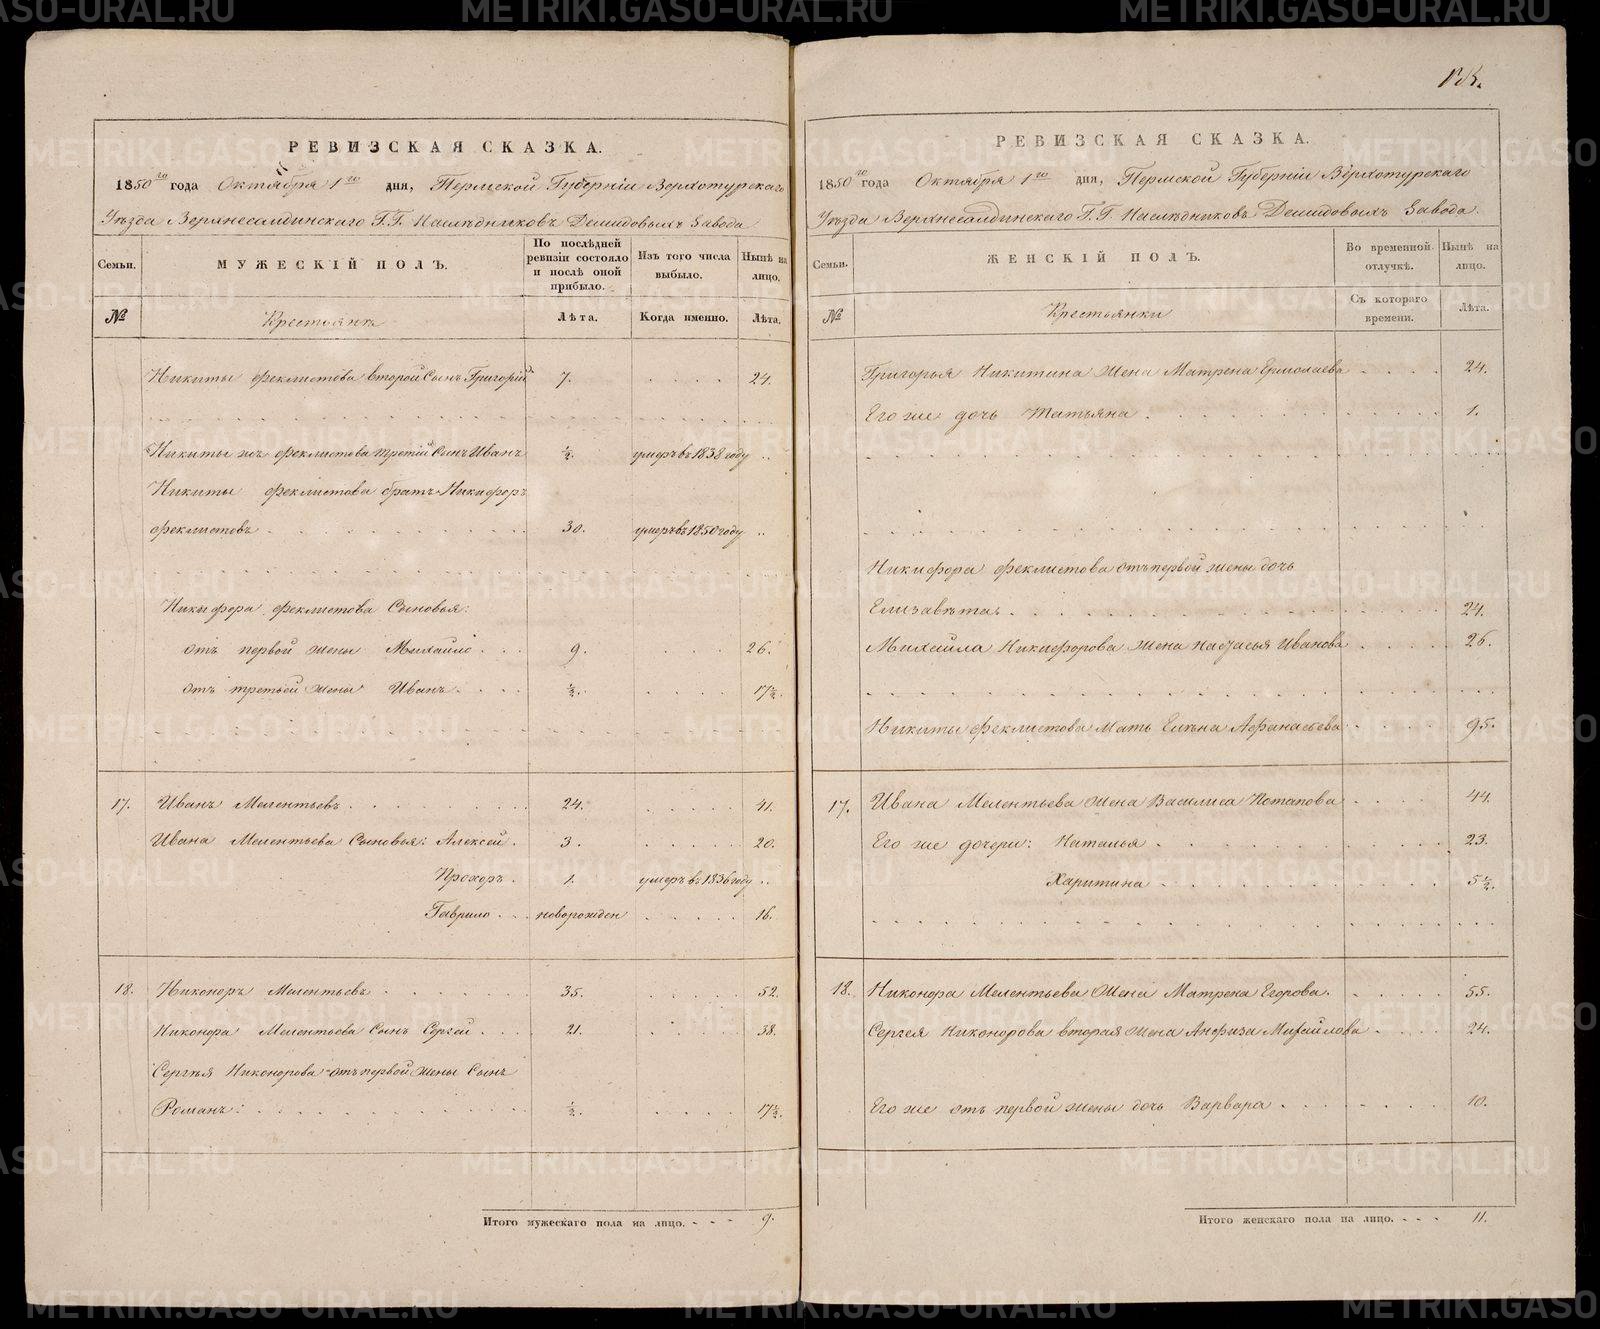 РЕВИЗСКАЯ СКАЗКА.
1850го года Октября 1го дня, Пермской Губернiи Верхотурскаго
Уѣзда Верхнесалдинскаго Г.Г. Наслѣдниковъ Демидовыхъ Завода
Семьи. МУЖЕСКIЙ ПОЛЪ. По послѣдней ревизiи состояло и послѣ оной прибыло. Изъ того числа выбыло. Нынѣ на лицо.
№ Крестьяне Лѣта. Когда именно. Лѣта.
Никиты Феклистова второй Сынъ Григорiй 7. 24.
Никиты жъ Феклистова третiй Сынъ Иванъ ½. умеръ въ 1838 году
Никиты Феклистова братъ Никифоръ
Феклистовъ 30. умеръ въ 1850 году
Никифора Феклистова Сыновья:
отъ первой жены Михайло 9. 26.
отъ третьей жены Иванъ ½. 17½.
17. Иванъ Мелентьевъ 24. 41.
Ивана Мелентьева Сыновья: Алексей 3. 20.
Прохоръ 1. умеръ въ 1836 году
Гаврило новорожден 16.
18. Никоноръ Мелентьевъ 35. 52.
Никонора Мелентьева Сынъ Сергей 21. 38.
Сергѣя Никонорова отъ первой жены Сынъ
Романъ: ½. 17½.
Итого мужескаго пола на лицо. 9.
РЕВИЗСКАЯ СКАЗКА.
1850го года Октября 1го дня, Пермской Губернiи Верхотурскаго
Уѣзда Верхнесалдинскаго Г.Г. Наслѣдниковъ Демидовыхъ Завода.
Семьи. ЖЕНСКIЙ ПОЛЪ. Во временной отлучкѣ. Нынѣ на лицо.
№ Крестьянки Съ котораго времени. Лѣта.
Григорья Никитина жена Матрена Ермолаева 24.
Его же дочь Татьяна 1.
Никифора Феклистова отъ первой жены дочь
Елизавѣта 24.
Михайла Никифорова жена Настасья Иванова 26.
Никиты Феклистова Мать Елена Афанасьева 95.
17. Ивана Мелентьева жена Василиса Потапова 44.
Его же дочери: Наталья 23.
Харитина 5½.
18. Никонора Мелентьева жена Матрена Егорова. 55.
Сергея Никонорова вторая жена Анфиза Михайлова 24.
Его же отъ первой жены дочь Варвара 10.
Итого женскаго пола на лицо. 11.
METRIKI.GASO-URAL.RU